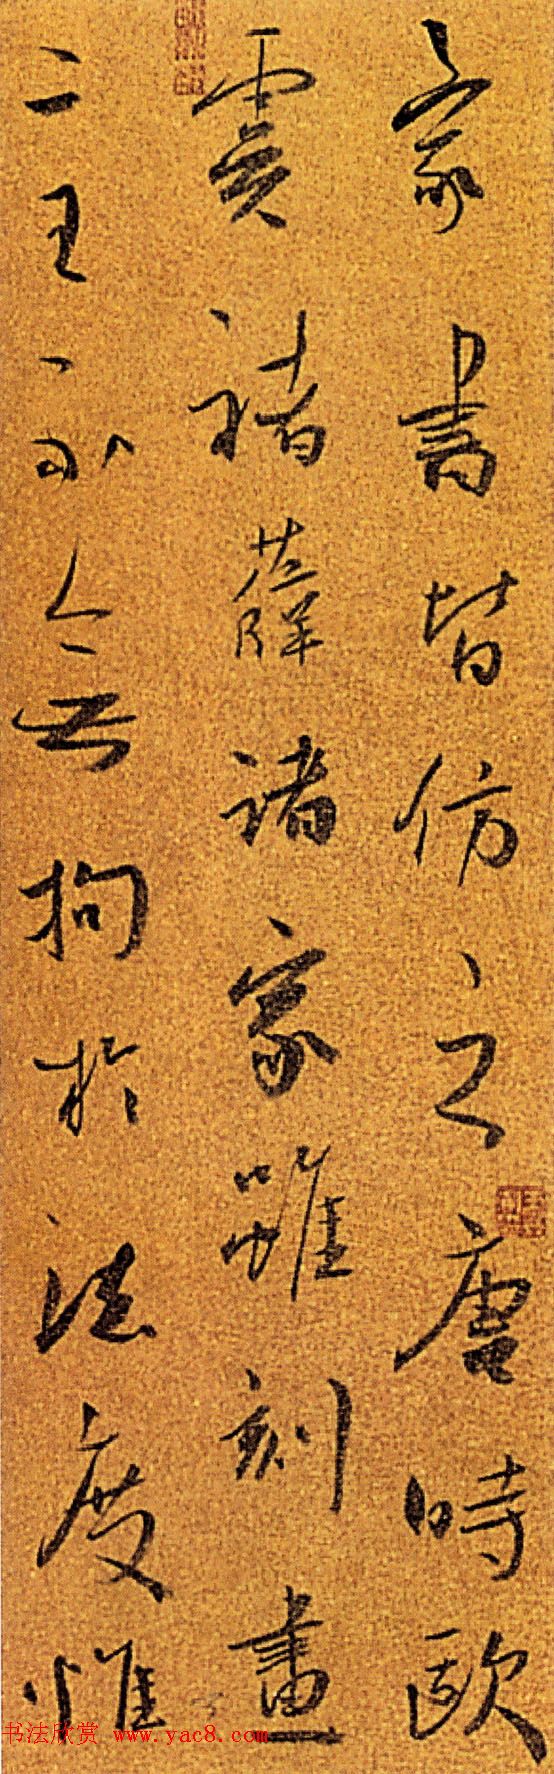 家書皆仿之唐時歐
虞褚薛諸家雖刻畫
二王不無拘於法度惟
书法欣赏 www.yac8.com